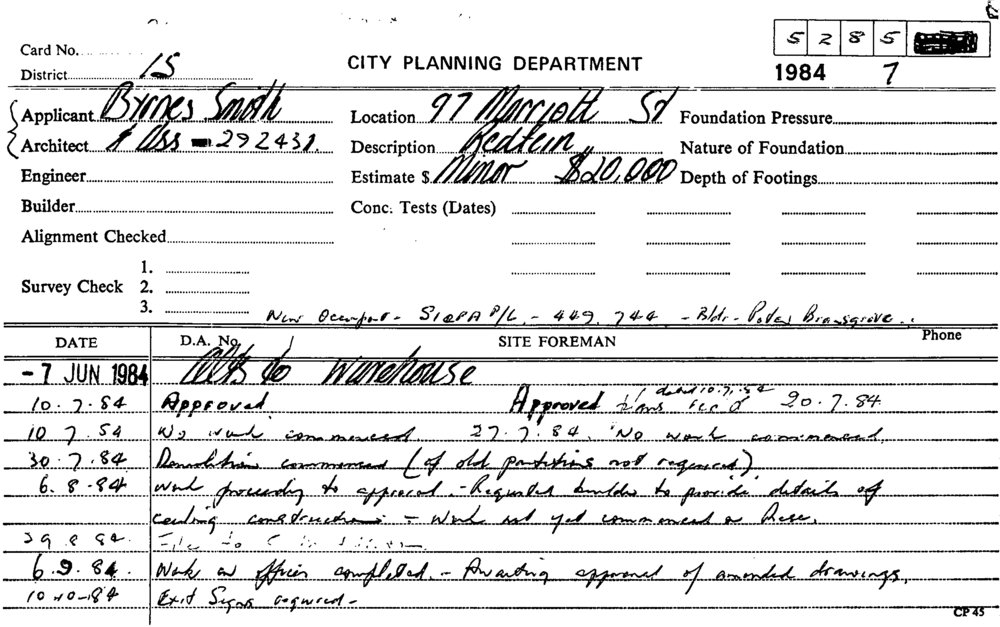 5285
Card No.
District 15
CITY PLANNING DEPARTMENT
1984 7
Applicant Byrnes Smith
Location 97 Marriott St
Foundation Pressure
Architect & Ass - 292431.
Description Redfern
Nature of Foundation
Engineer
Estimate $ Minor $20,000
Depth of Footings
Builder
Conc. Tests (Dates)
Alignment Checked
Survey Check 1.
2.
3.
New Occupant - P/L. - 449.744 - Bldr - Peter
DATE D.A. No. SITE FOREMAN Phone
-7 JUN 1984 Alts to Warehouse
10.7.84 Approved Approved plans dated 10.7.84 rec'd 20.7.84
10 7 84 No work commenced 27.7.84. No work commenced.
30.7.84 Demolition commenced (of old partitions not required).
6.8.84 Work proceeding to approval. - Requested builder to provide details of
ceiling construction - work not yet commenced on these.
29 8 84 File to
6.9.84. Work on offices completed. - Awaiting approval of amended drawings.
10.10.84 Exit Signs required -
CP 45